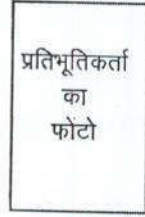 प्रतिभूतिकर्ता
का
फोंटो